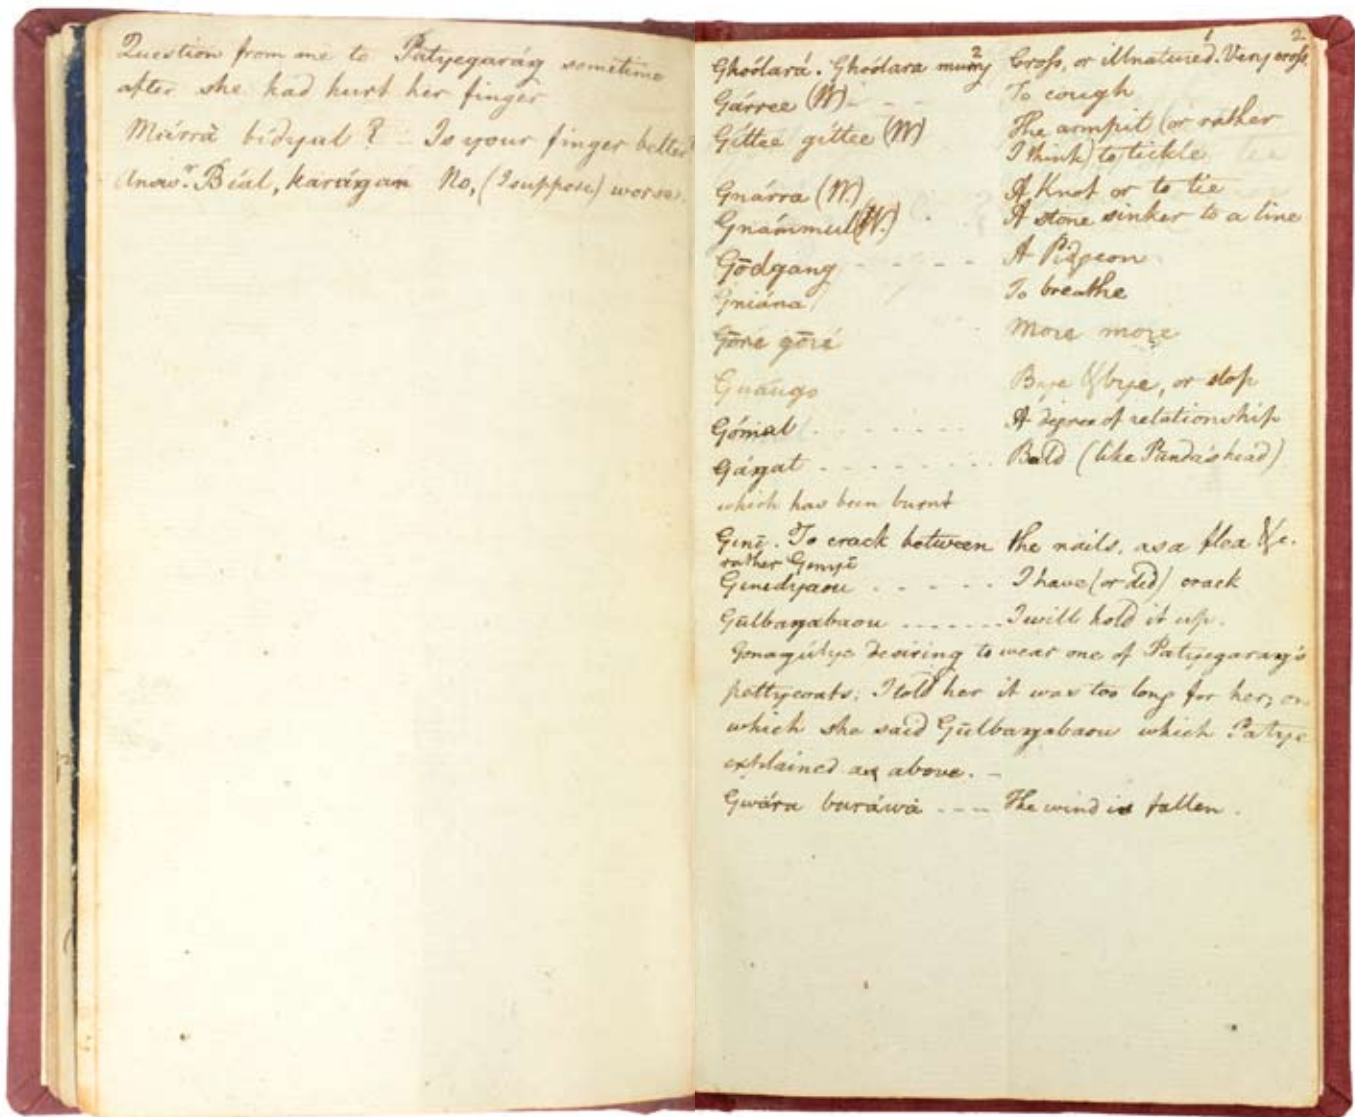 Question from me to Patyegaráŋ sometime
after she had hurt her finger
Márrā bídyul? Is your finger better?
Answr. Bíal, karáŋan No, (I suppose) worse.
1 2
Ghoólará. Ghoólara murry 2 Cross, or illnatured. Very cross
Gárree (W) - - - To cough
Gíttee gíttee (W) The armpit (or rather
I think) to tickle
Gnárra (W.) A Knot or to tie
Gnámmul (W.) A stone sinker to a line
Gōdgang - - - - - A Pidgeon
Gniána To breathe
Gōré gōré More more
Guāugo Bye & bye, or stop
Gómul - - - - - - A degree of relationship
Gáŋat - - - - - - Bald (like Punda's head)
which has been burnt
Ginē. To crack between the nails, as a flea &c.
rather Ginyē
Ginedyaou - - - - - I have (or did) crack
Gūlbaŋabaou - - - - - - - I will hold it up.
Gonagúlye desiring to wear one of Patyegaraŋ's
pettycoats: I told her it was too long for her, on
which she said Gūlbaŋabaou which Patye
explained as above. -
Gwára buráwá - - - - The wind is fallen.